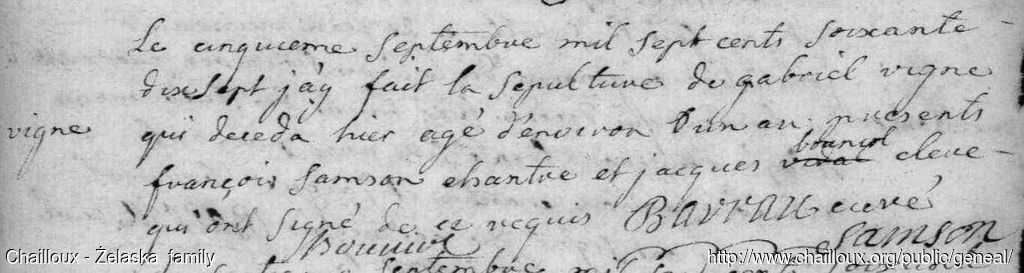 Le cinquieme septembre mil sept cents soixante
dix sept j'ay fait la sepulture de gabriel vigne
vigne
qui deceda hier agé d'environ d'un an, presents
bouniol
françois samson chantre et jacques cleve
qui ont signé de ce requis Barrau curé
Samson
septembre mil
Chailloux - Żelaska family
http://www.chailloux.org/public/geneal/